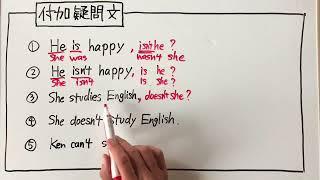 付加疑問文
① He is happy, isn't he?
She was hasn't she
② He isn't happy, is he?
She isn't is she
③ She studies English, doesn't she?
④ She doesn't study English.
⑤ Ken can't s